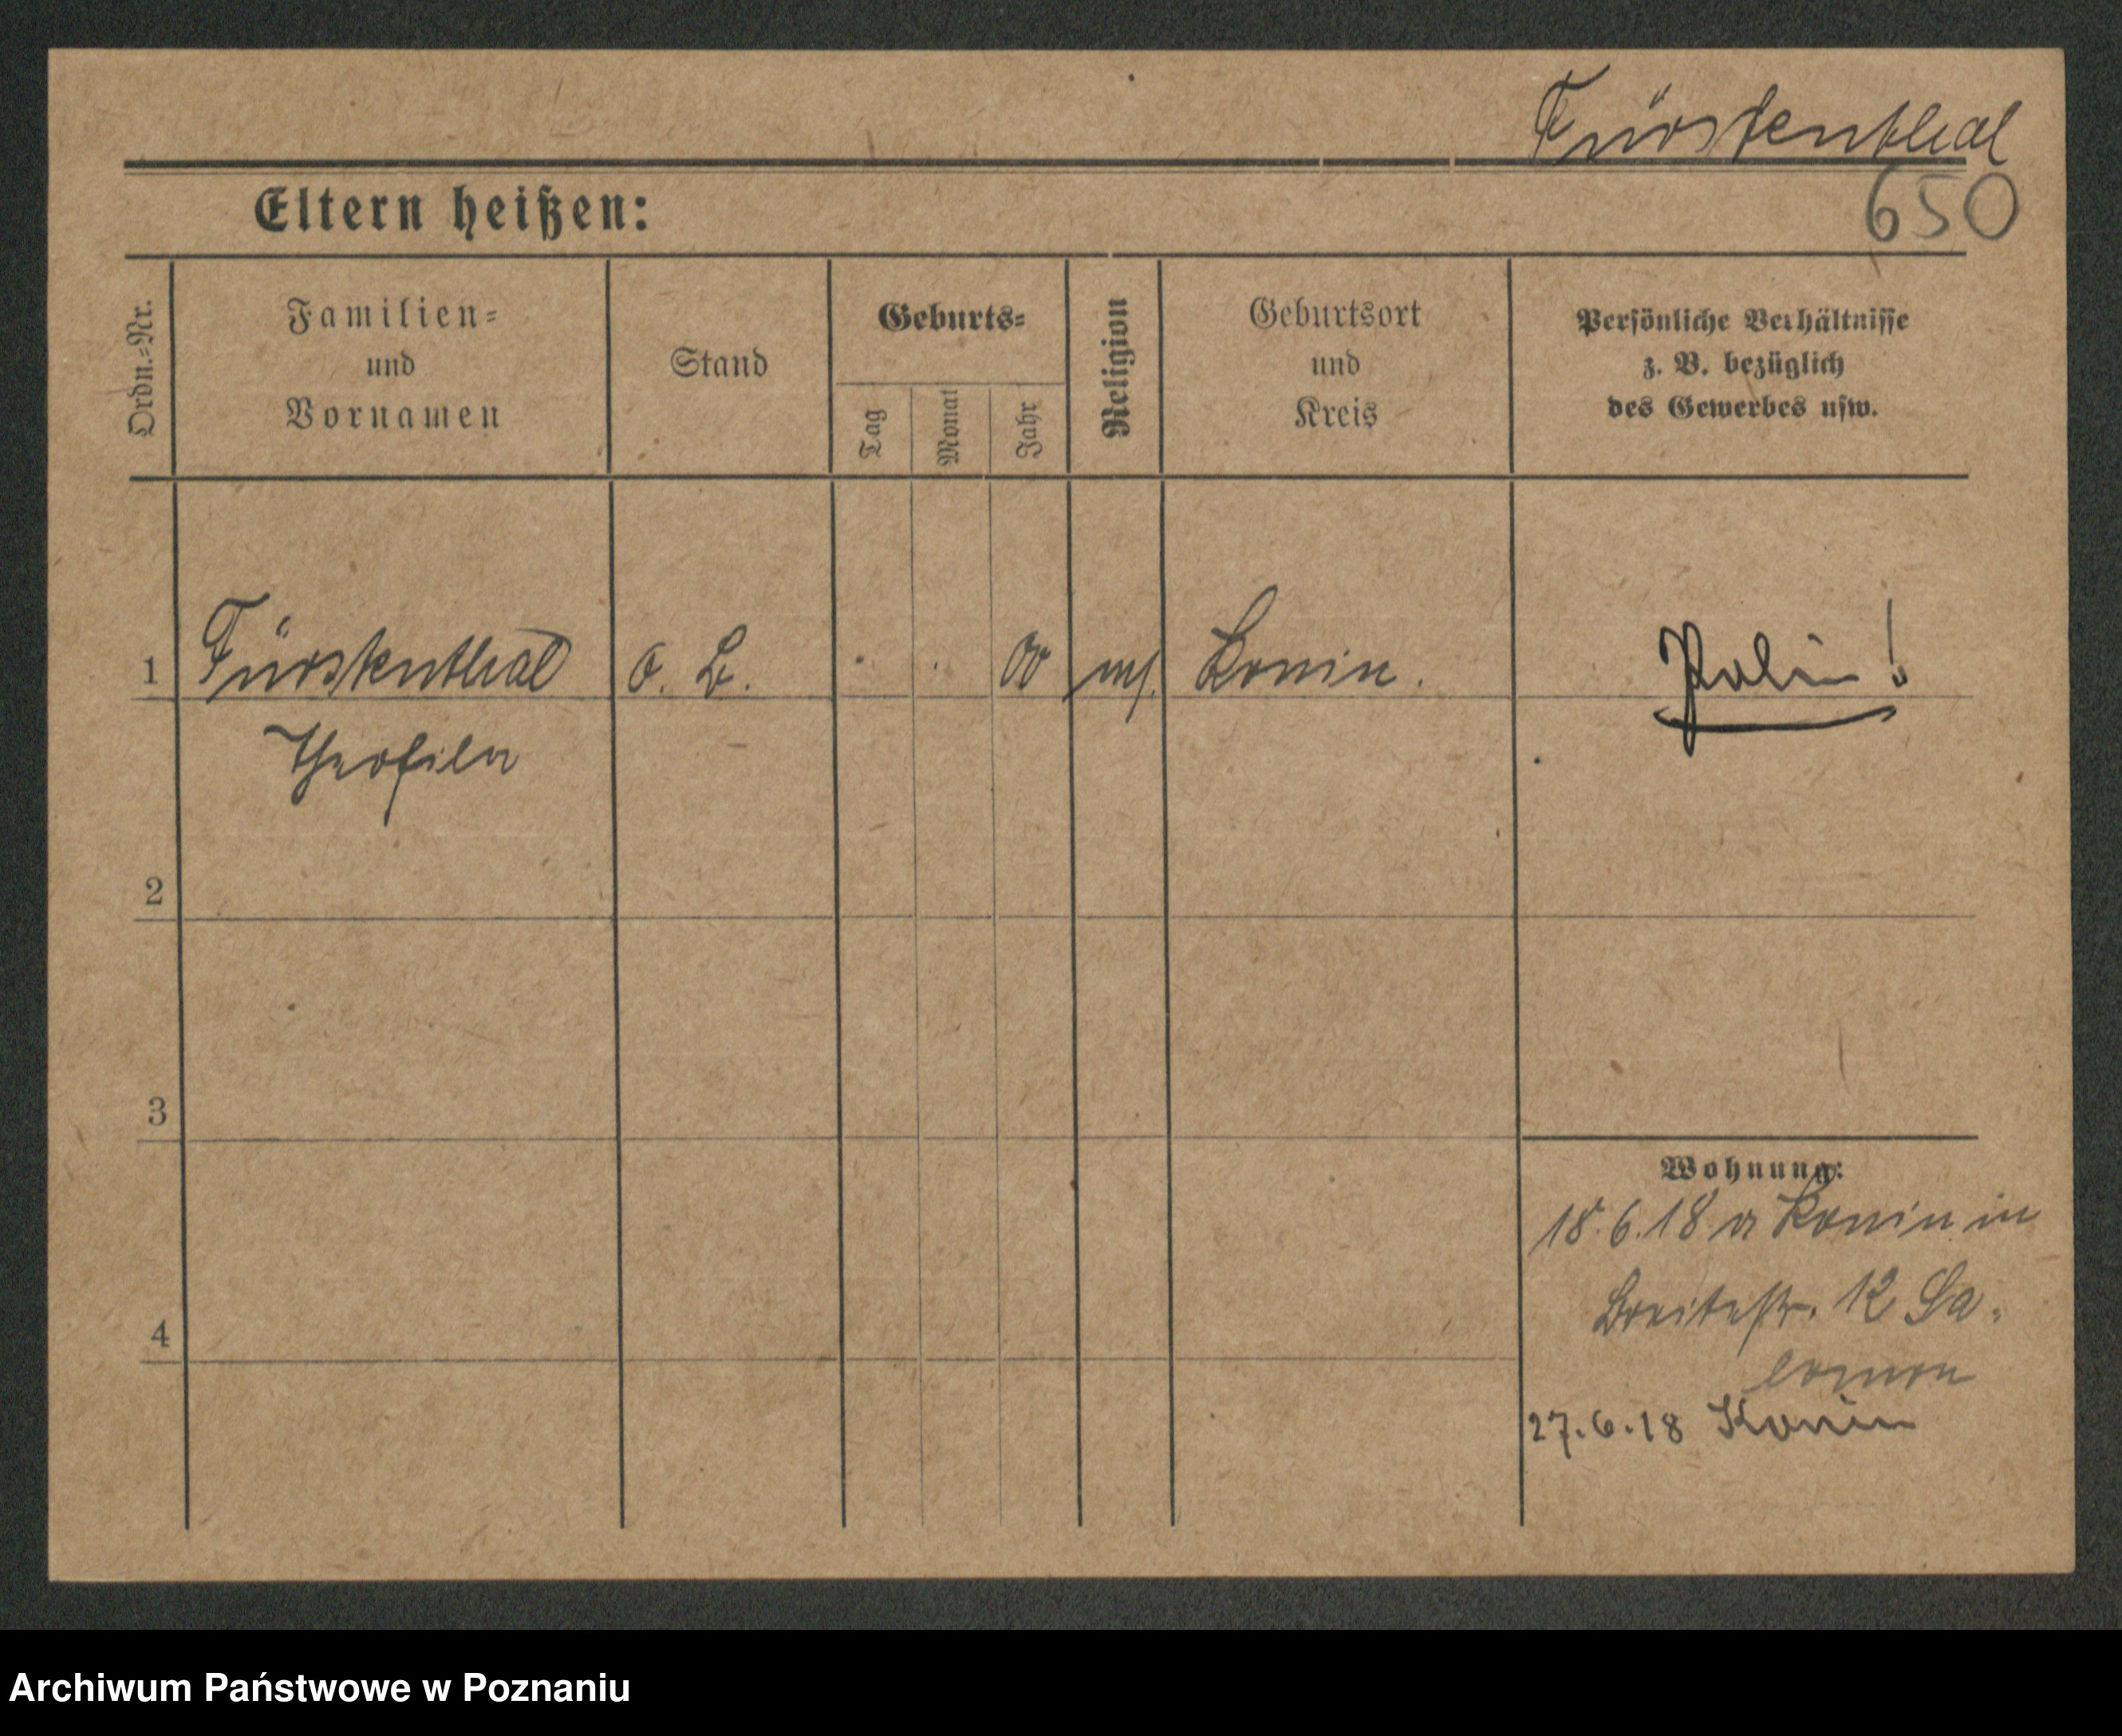 Fürstenthal
650
Eltern heißen:
Ordn.-Nr.
Familien-
und
Vornamen
Stand
Geburts-
Tag
Monat
Jahr
Religion
Geburtsort
und
Kreis
Persönliche Verhältnisse
z. B. bezüglich
des Gewerbes usw.
1 Fürstenthal o. B. 00 Konin. Polin!
Theofila
2
3
4
Wohnung:
18.6.18 a Konin in
Breitestr. 12 Sa-
lomon
27.6.18 Konin
Archiwum Państwowe w Poznaniu